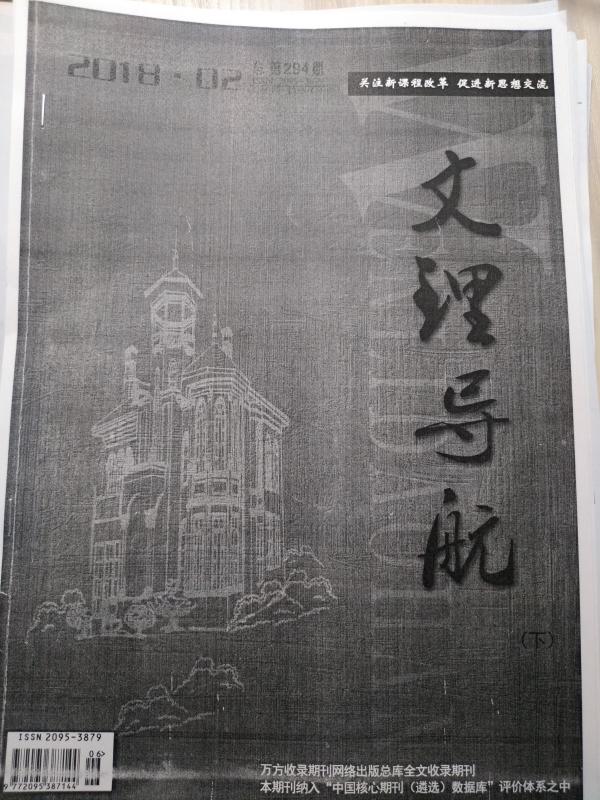 2018·02
总第294期
关注新课程改革 促进新思想交流
文理导航
（下）
ISSN 2095-3879
06>
9 772095 387144
万方收录期刊网络出版总库全文收录期刊
本期刊纳入“中国核心期刊（遴选）数据库”评价体系之中